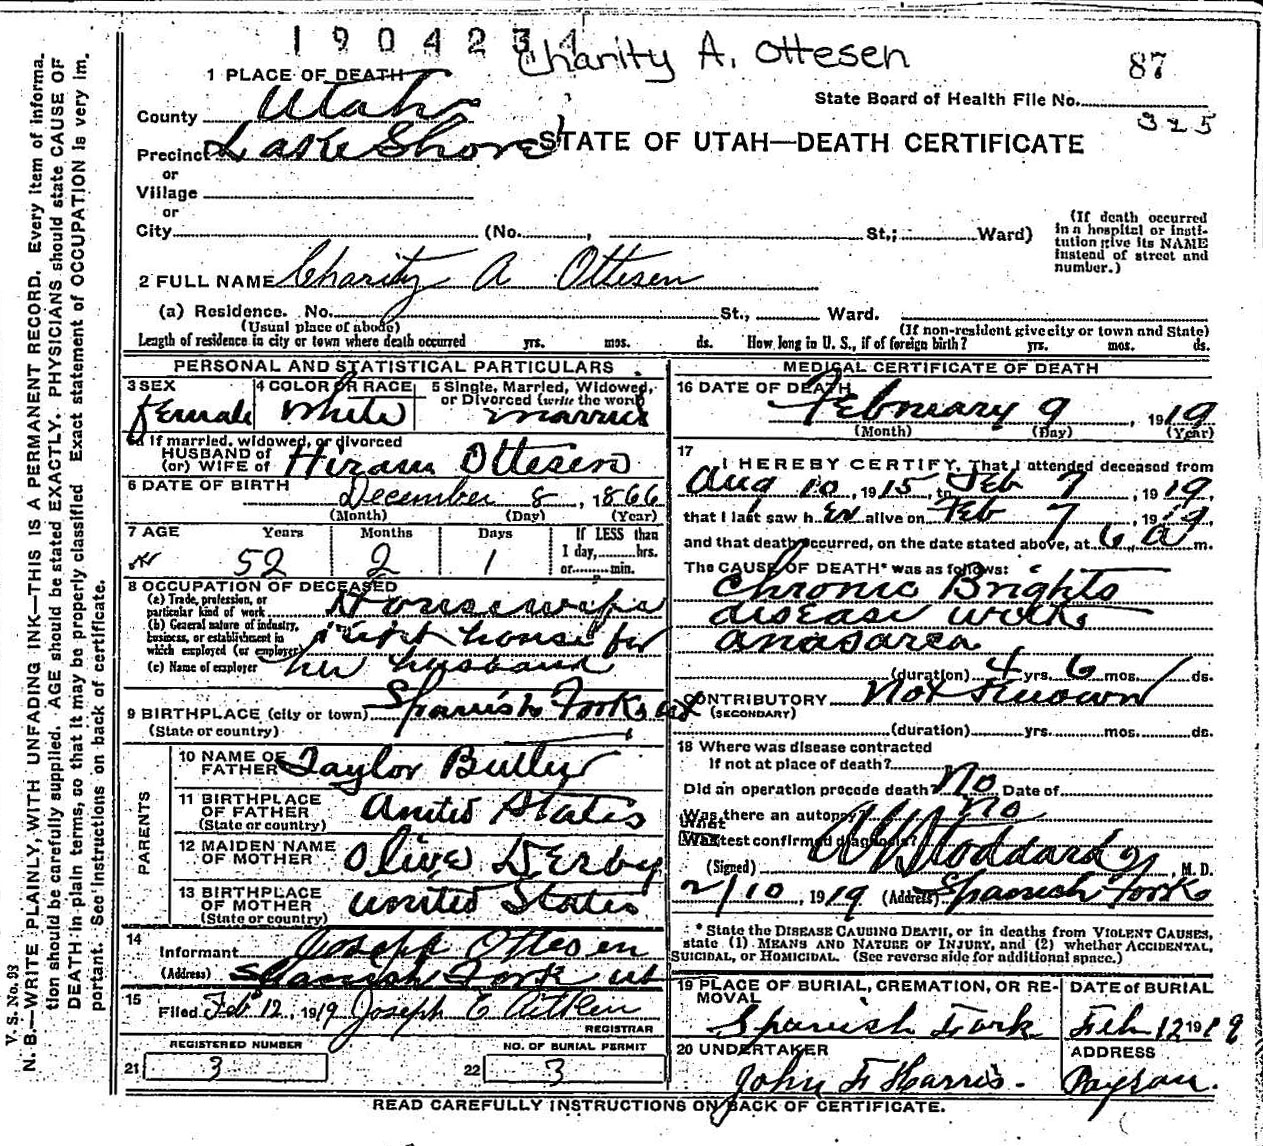 1904234
Charity A. Ottesen
87
1 PLACE OF DEATH
State Board of Health File No.
325
County Utah
STATE OF UTAH—DEATH CERTIFICATE
Precinct Lake Shore
or
Village
or
City (No. , St.; Ward)
(If death occurred
in a hospital or insti-
tution give its NAME
instead of street and
number.)
2 FULL NAME Charity A Ottesen
(a) Residence. No. St., Ward.
(Usual place of abode) (If non-resident give city or town and State)
Length of residence in city or town where death occurred yrs. mos. ds. How long in U. S., if of foreign birth? yrs. mos. ds.
PERSONAL AND STATISTICAL PARTICULARS
3 SEX
female
4 COLOR OR RACE
White
5 Single, Married, Widowed,
or Divorced (write the word)
Married
If married, widowed, or divorced
HUSBAND of
(or) WIFE of Hiram Ottesen
6 DATE OF BIRTH
December 8, 1866
(Month) (Day) (Year)
7 AGE Years Months Days If LESS than
1 day, hrs.
or min.
52 2 1
8 OCCUPATION OF DECEASED
(a) Trade, profession, or
particular kind of work Housewife
(b) General nature of industry,
business, or establishment in
which employed (or employer) kept house for
(c) Name of employer her husband
9 BIRTHPLACE (city or town) Spanish Fork, ut
(State or country)
PARENTS
10 NAME OF
FATHER Taylor Butler
11 BIRTHPLACE
OF FATHER United States
(State or country)
12 MAIDEN NAME
OF MOTHER Olive Derby
13 BIRTHPLACE
OF MOTHER United States
(State or country)
14
Informant Joseph Ottesen
(Address) Spanish Fork ut
15
Filed Feb 12, 1919 Joseph E Aitken
REGISTRAR
REGISTERED NUMBER
21 3
NO. OF BURIAL PERMIT
22 3
MEDICAL CERTIFICATE OF DEATH
16 DATE OF DEATH
February 9, 1919
(Month) (Day) (Year)
17
I HEREBY CERTIFY, That I attended deceased from
Aug 10, 1915, to Feb 7, 1919,
that I last saw her alive on Feb 7, 1919
and that death occurred, on the date stated above, at 6 a m.
The CAUSE OF DEATH* was as follows:
Chronic Brights
disease with
anasarca
(duration) 4 yrs. 6 mos. ds.
CONTRIBUTORY Not Known
(SECONDARY)
(duration) yrs. mos. ds.
18 Where was disease contracted
If not at place of death?
Did an operation precede death? No Date of
Was there an autopsy? No
What test confirmed diagnosis?
(Signed) Stoddard, M. D.
2/10, 1919 (Address) Spanish Fork
* State the DISEASE CAUSING DEATH, or in deaths from VIOLENT CAUSES,
state (1) MEANS AND NATURE OF INJURY, and (2) whether ACCIDENTAL,
SUICIDAL, or HOMICIDAL. (See reverse side for additional space.)
19 PLACE OF BURIAL, CREMATION, OR RE-
MOVAL
Spanish Fork
DATE of BURIAL
Feb 12 1919
20 UNDERTAKER
John F Harris.
ADDRESS
Payson.
READ CAREFULLY INSTRUCTIONS ON BACK OF CERTIFICATE.
V. S. No. 93
N. B.—WRITE PLAINLY, WITH UNFADING INK—THIS IS A PERMANENT RECORD. Every item of informa-
tion should be carefully supplied. AGE should be stated EXACTLY. PHYSICIANS should state CAUSE OF
DEATH in plain terms, so that it may be properly classified. Exact statement of OCCUPATION is very im-
portant. See instructions on back of certificate.